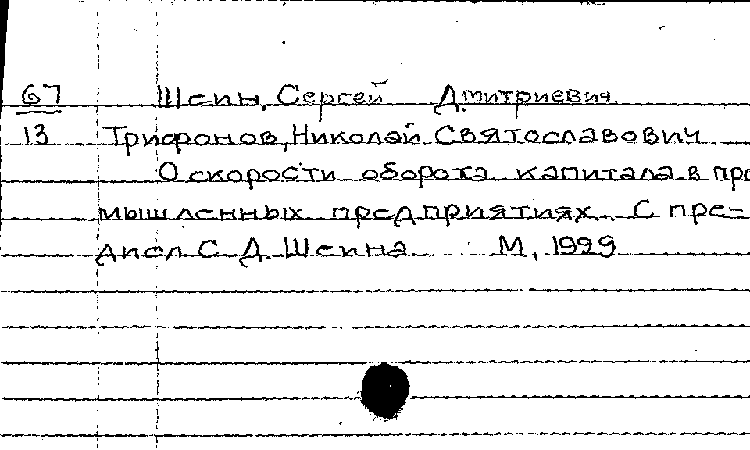 67 Шеин, Сергей Дмитриевич
13 Трифонов, Николай Святославович
О скорости оборота капитала в про
мышленных предприятиях. С пре-
дисл. С. Д. Шеина М., 1929